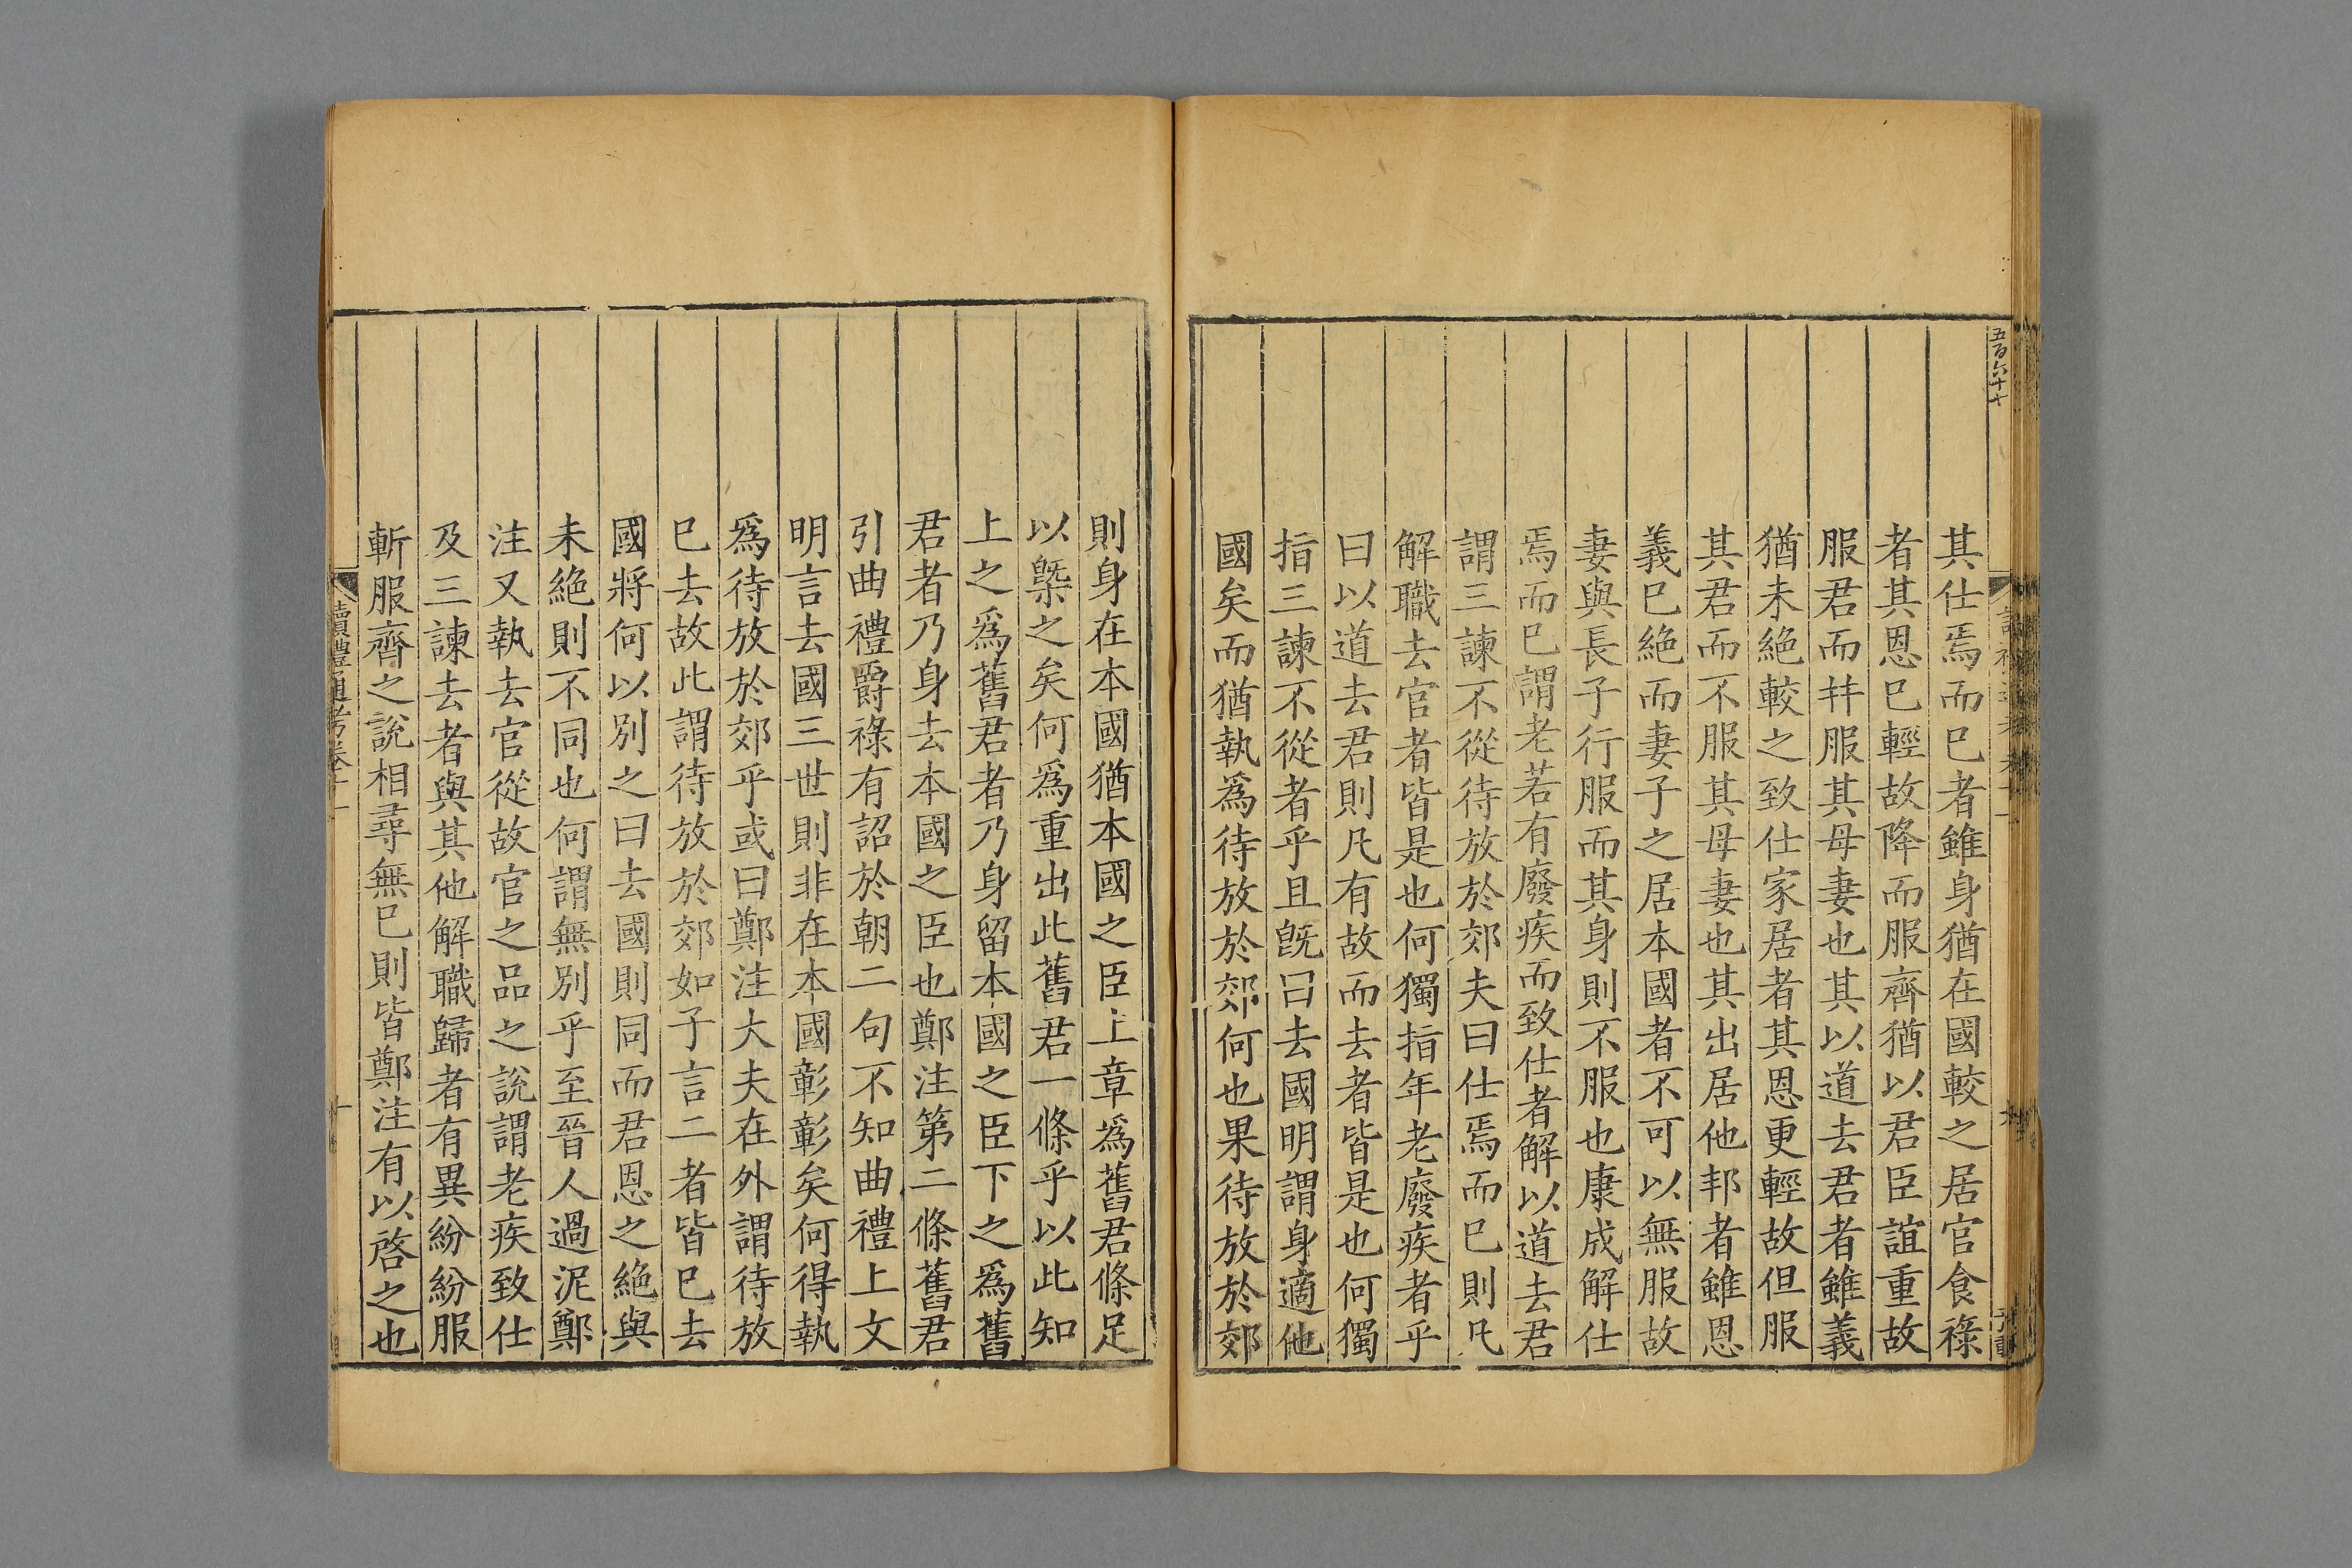 五百六十七
其仕焉而已者雖身猶在國較之居官食祿
者其恩已輕故降而服齊猶以君臣誼重故
服君而幷服其母妻也其以道去君者雖義
猶未絶較之致仕家居者其恩更輕故但服
其君而不服其母妻也其出居他邦者雖恩
義已絶而妻子之居本國者不可以無服故
妻與長子行服而其身則不服也康成解仕
焉而已謂老若有廢疾而致仕者解以道去君
謂三諫不從待放於郊夫曰仕焉而已則凡
解職去官者皆是也何獨指年老廢疾者乎
曰以道去君則凡有故而去者皆是也何獨
指三諫不從者乎且旣曰去國明謂身適他
國矣而猶執爲待放於郊何也果待放於郊
則身在本國猶本國之臣上章爲舊君條足
以槩之矣何爲重出此舊君一條乎以此知
上之爲舊君者乃身留本國之臣下之爲舊
君者乃身去本國之臣也鄭注第二條舊君
引曲禮爵祿有詔於朝二句不知曲禮上文
明言去國三世則非在本國彰彰矣何得執
爲待放於郊乎或曰鄭注大夫在外謂待放
已去故此謂待放於郊如子言二者皆已去
國將何以別之曰去國則同而君恩之絶與
未絶則不同也何謂無別乎至晉人過泥鄭
注又執去官從故官之品之說謂老疾致仕
及三諫去者與其他解職歸者有異紛紛服
斬服齊之說相尋無已則皆鄭注有以啓之也
讀禮通考卷十一